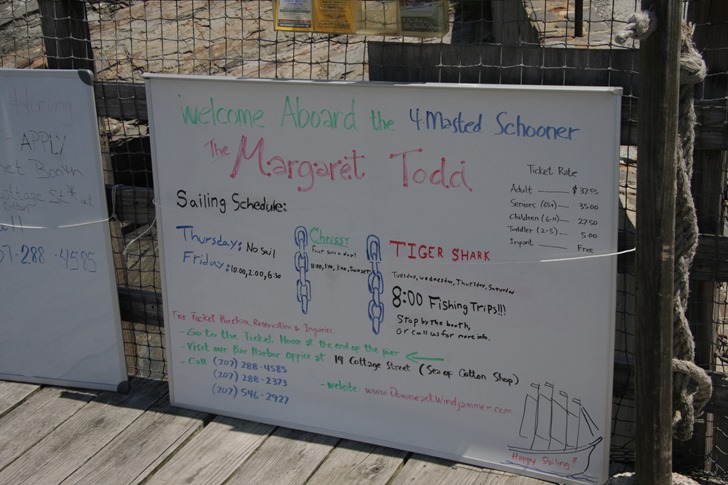 Hiring
APPLY
et Booth
ottage St
ll
07-288-4585
Welcome Aboard the 4-Masted Schooner
The Margaret Todd
Sailing Schedule:
Thursday: No sail
Friday: 10:00, 2:00, 6:30
Chrissy
TIGER SHARK
Tuesday, Wednesday, Thursday, Saturday
8:00 Fishing Trips!!!
Stop by the booth,
Or call us for more info.
Ticket Rate
Adult — $37.50
Seniors (65+) — 35.00
Children (6-11) — 27.50
Toddler (2-5) — 5.00
Infant — Free
For Ticket Purchase, Reservation & Inquiries:
- Go to the Ticket House at the end of the pier
- Visit our Bar Harbor office at 19 Cottage Street (Sea of Cotton Shop)
- Call (207) 288-4585
(207) 288-2373
(207) 546-2927
- website: www.DowneastWindjammer.com
Happy Sailing!!